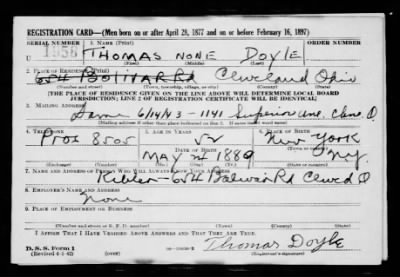 REGISTRATION CARD—(Men born on or after April 28, 1877 and on or before February 16, 1897)
SERIAL NUMBER 1. NAME (Print) ORDER NUMBER
1958 THOMAS NONE DOYLE
(First) (Middle) (Last)
2. PLACE OF RESIDENCE (Print)
BOLIVAR Rd Cleveland Ohio
(Number and street) (Town, township, village, or city) (County) (State)
[THE PLACE OF RESIDENCE GIVEN ON THE LINE ABOVE WILL DETERMINE LOCAL BOARD
JURISDICTION; LINE 2 OF REGISTRATION CERTIFICATE WILL BE IDENTICAL]
3. MAILING ADDRESS
Same 6/14/43 - 1141 Superior ave, Cleve. O.
[Mailing address if other than place indicated on line 2. If same insert word same]
4. TELEPHONE 5. AGE IN YEARS 6. PLACE OF BIRTH
Pros 8505 52 New York
DATE OF BIRTH
MAY 1889 N.Y.
(Exchange) (Number) (Mo.) (Day) (Yr.) (Town or county) (State or country)
7. NAME AND ADDRESS OF PERSON WHO WILL ALWAYS KNOW YOUR ADDRESS
Rd Cleved O
8. EMPLOYER'S NAME AND ADDRESS
None
9. PLACE OF EMPLOYMENT OR BUSINESS
(Number and street or R. F. D. number) (Town) (County) (State)
I AFFIRM THAT I HAVE VERIFIED ABOVE ANSWERS AND THAT THEY ARE TRUE.
D. S. S. Form 1
(Revised 4-1-42) (over)
Thomas Doyle
(Registrant's signature)